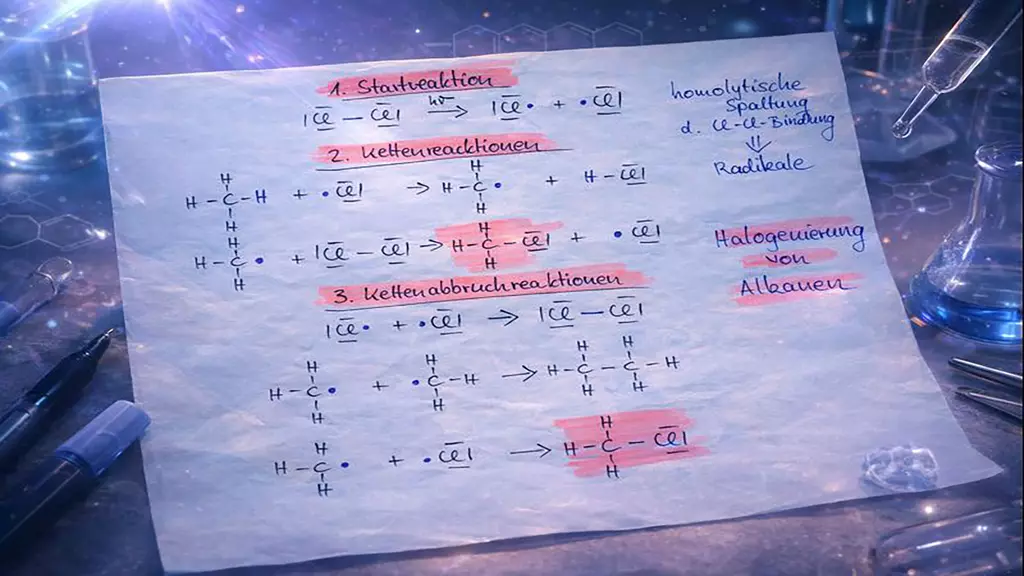 1. Startreaktion
|C̅l̲ — C̅l̲| hν → |C̅l̲• + •C̅l̲|
homolytische
Spaltung
d. Cl-Cl-Bindung
⇓
Radikale
2. Kettenreaktionen
H
H – C – H + •C̅l̲| → H – C • + H – C̅l̲|
H
H
H – C • + |C̅l̲ — C̅l̲| → H – C – C̅l̲| + •C̅l̲|
H
Halogenierung
von
Alkanen
3. Kettenabbruchreaktionen
|C̅l̲• + •C̅l̲| → |C̅l̲ — C̅l̲|
H H H H
H – C • + • C – H → H – C – C – H
H H H H
H H
H – C • + •C̅l̲| → H – C – C̅l̲|
H H